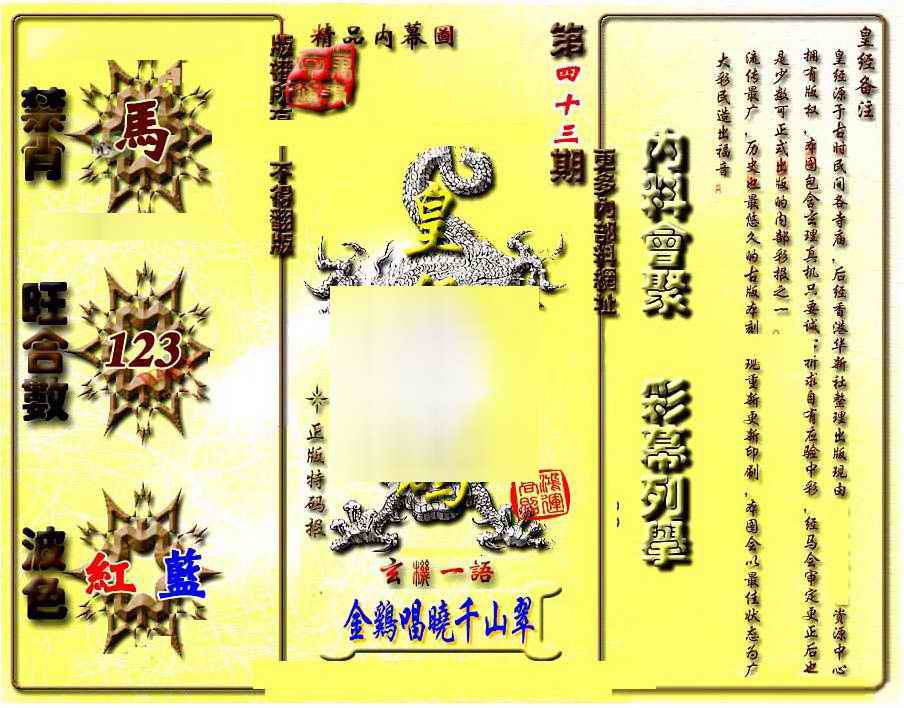 精品内幕圖
版權所有
不得翻版
禁肖
馬
旺合數
123
波色
紅 藍
第四十三期
皇
正版特码报
鴻運
玄機一語
金鷄唱曉千山翠
更多内部料網址
内料會聚
彩幕列舉
皇经备注
皇经源于古时民间各寺庙,后经香港华新社整理出版现由 资源中心
拥有版权,本图包含玄理真机只要诚;祈求自有应验中彩,经马会审定更正后也
是少数可正式出版的内部彩报之一。
流传最广,历史也最悠久的古版本刻 现重新更新印刷,本图会以最佳状态为广
大彩民造出福音